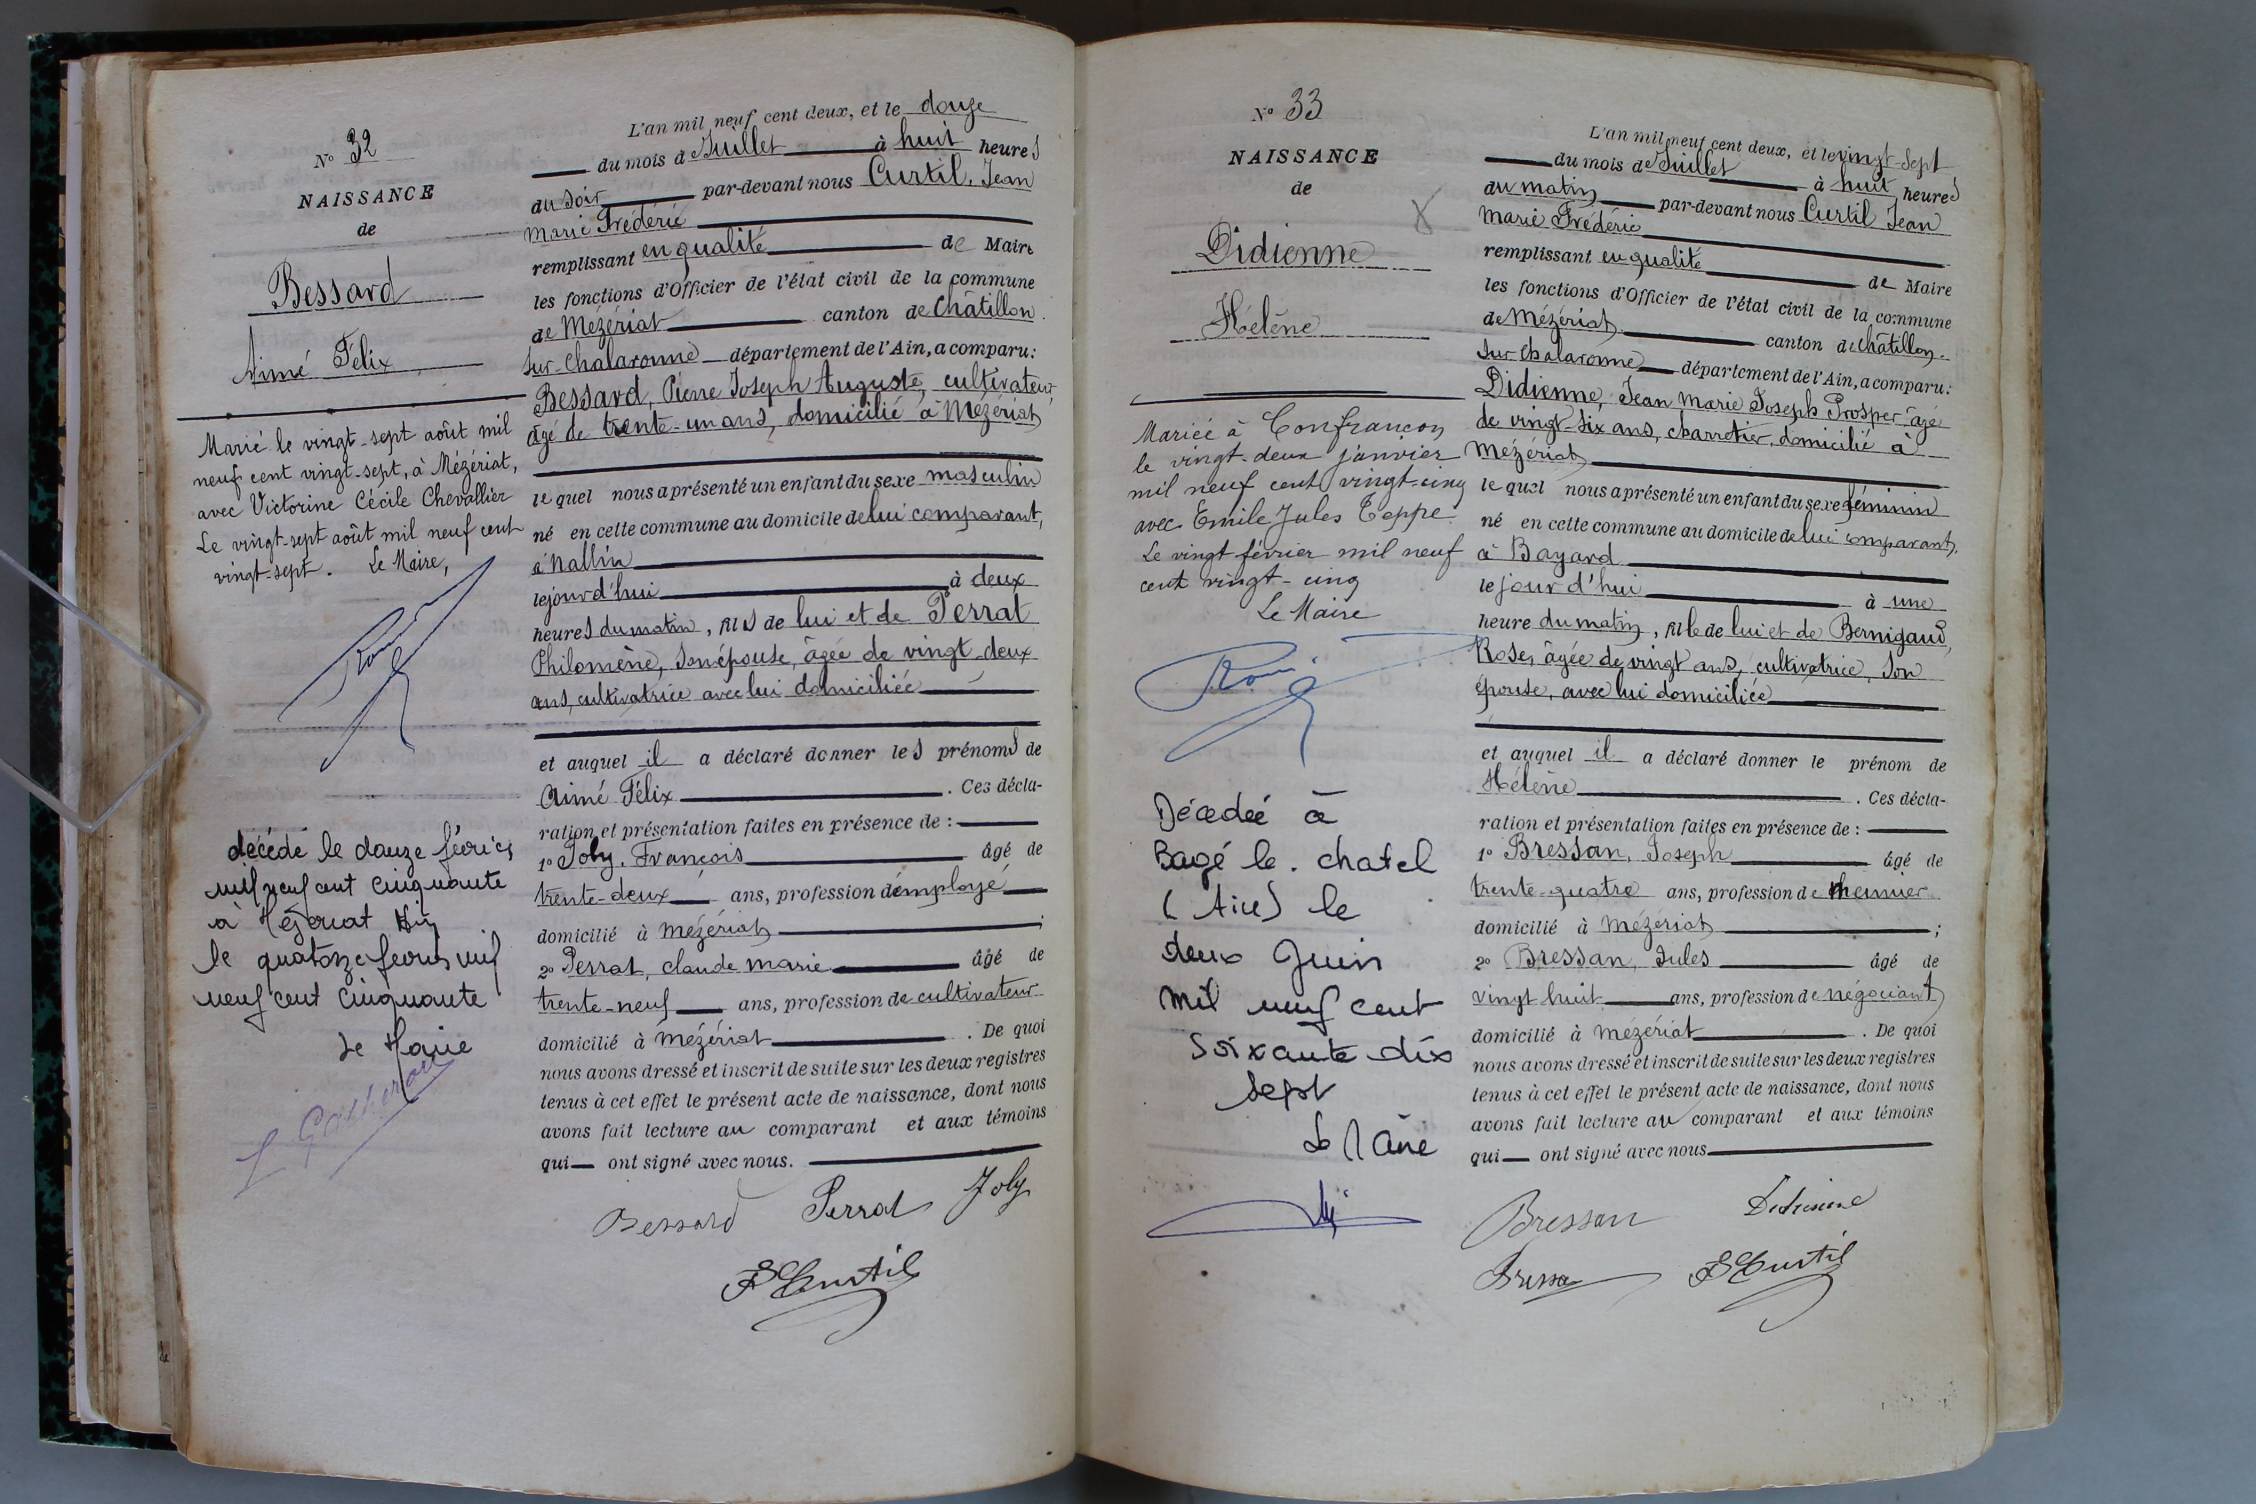 N° 32
NAISSANCE
de
Bessard
Aimé Félix
Marié le vingt-sept août mil
neuf cent vingt-sept, à Mézériat,
avec Victorine Cécile Chevallier
Le vingt-sept août mil neuf cent
vingt-sept. Le Maire,
décédé le douze février
mil neuf cent cinquante
à Mézériat Ain
le quatorze février mil
neuf cent cinquante
Le Maire
L'an mil neuf cent deux, et le douze
du mois de Juillet à huit heures
du soir par-devant nous Curtil, Jean
Marie Frédéric
remplissant en qualité de Maire
les fonctions d'Officier de l'état civil de la commune
de Mézériat canton de Châtillon
sur-Chalaronne département de l'Ain, a comparu:
Bessard, Pierre Joseph Auguste, cultivateur,
âgé de trente-un ans, domicilié à Mézériat
lequel nous a présenté un enfant du sexe masculin
né en cette commune au domicile de lui comparant,
à Nallin
le jour d'hui à deux
heures du matin, fils de lui et de Perrat
Philomène, son épouse, âgée de vingt-deux
ans, cultivatrice avec lui domiciliée
et auquel il a déclaré donner les prénoms de
Aimé Félix. Ces décla-
ration et présentation faites en présence de :
1° Joly, François âgé de
trente-deux ans, profession d'employé
domicilié à Mézériat ;
2° Perrat, Claude Marie âgé de
trente-neuf ans, profession de cultivateur
domicilié à Mézériat. De quoi
nous avons dressé et inscrit de suite sur les deux registres
tenus à cet effet le présent acte de naissance, dont nous
avons fait lecture au comparant et aux témoins
qui ont signé avec nous.
Bessard Perrat Joly
Curtil
N° 33
NAISSANCE
de
Didienne
Hélène
Mariée à Confrançon
le vingt-deux janvier
mil neuf cent vingt-cinq
avec Emile Jules Teppe
Le vingt février mil neuf
cent vingt-cinq
Le Maire
Décédée à
Bagé le chatel
(Ain) le
deux Juin
mil neuf cent
soixante dix
sept
Le Maire
L'an mil neuf cent deux, et le vingt-sept
du mois de Juillet à huit heures
du matin par-devant nous Curtil Jean
Marie Frédéric
remplissant en qualité de Maire
les fonctions d'Officier de l'état civil de la commune
de Mézériat canton de Châtillon-
sur Chalaronne département de l'Ain, a comparu:
Didienne, Jean Marie Joseph Prosper âgé
de vingt-six ans, charretier, domicilié à
Mézériat
lequel nous a présenté un enfant du sexe féminin
né en cette commune au domicile de lui comparant,
à Bayard
le jour d'hui à une
heure du matin, fille de lui et de Bernigaud,
Rose, âgée de vingt ans, cultivatrice, son
épouse, avec lui domiciliée
et auquel il a déclaré donner le prénom de
Hélène. Ces décla-
ration et présentation faites en présence de :
1° Bressan, Joseph âgé de
trente-quatre ans, profession de
domicilié à Mézériat ;
2° Bressan, Jules âgé de
vingt huit ans, profession de négociant
domicilié à Mézériat. De quoi
nous avons dressé et inscrit de suite sur les deux registres
tenus à cet effet le présent acte de naissance, dont nous
avons fait lecture au comparant et aux témoins
qui ont signé avec nous
Bressan Didienne
Curtil